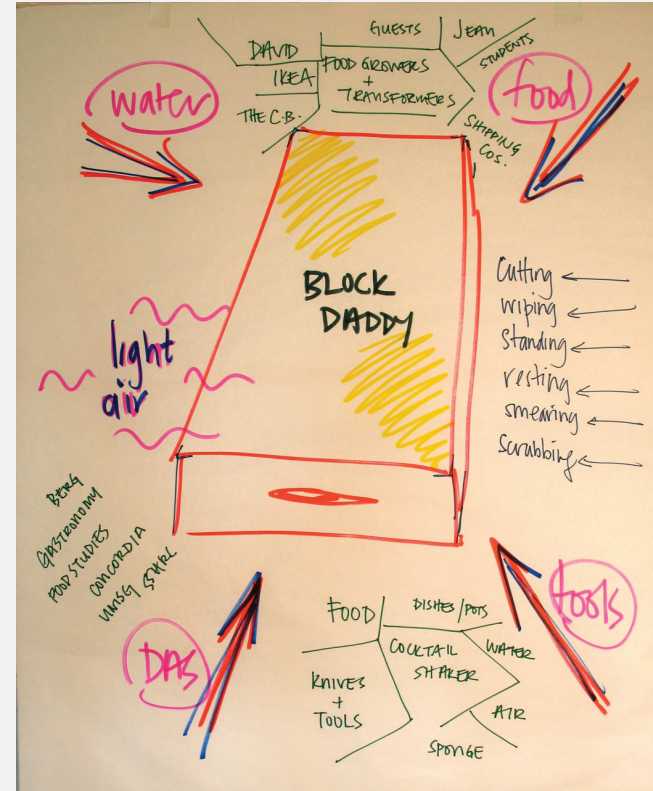 GUESTS
JEAN
STUDENTS
DAVID
IKEA
FOOD GROWERS
+
TRANSFORMERS
THE C.B.
SHIPPING
COS.
water
food
BLOCK
DADDY
Cutting
wiping
Standing
resting
smearing
Scrubbing
light
air
BERG
GASTRONOMY
FOOD STUDIES
CONCORDIA
UNISG SSHRC
DAS
tools
FOOD
DISHES/POTS
COCKTAIL
SHAKER
WATER
KNIVES
+
TOOLS
AIR
SPONGE